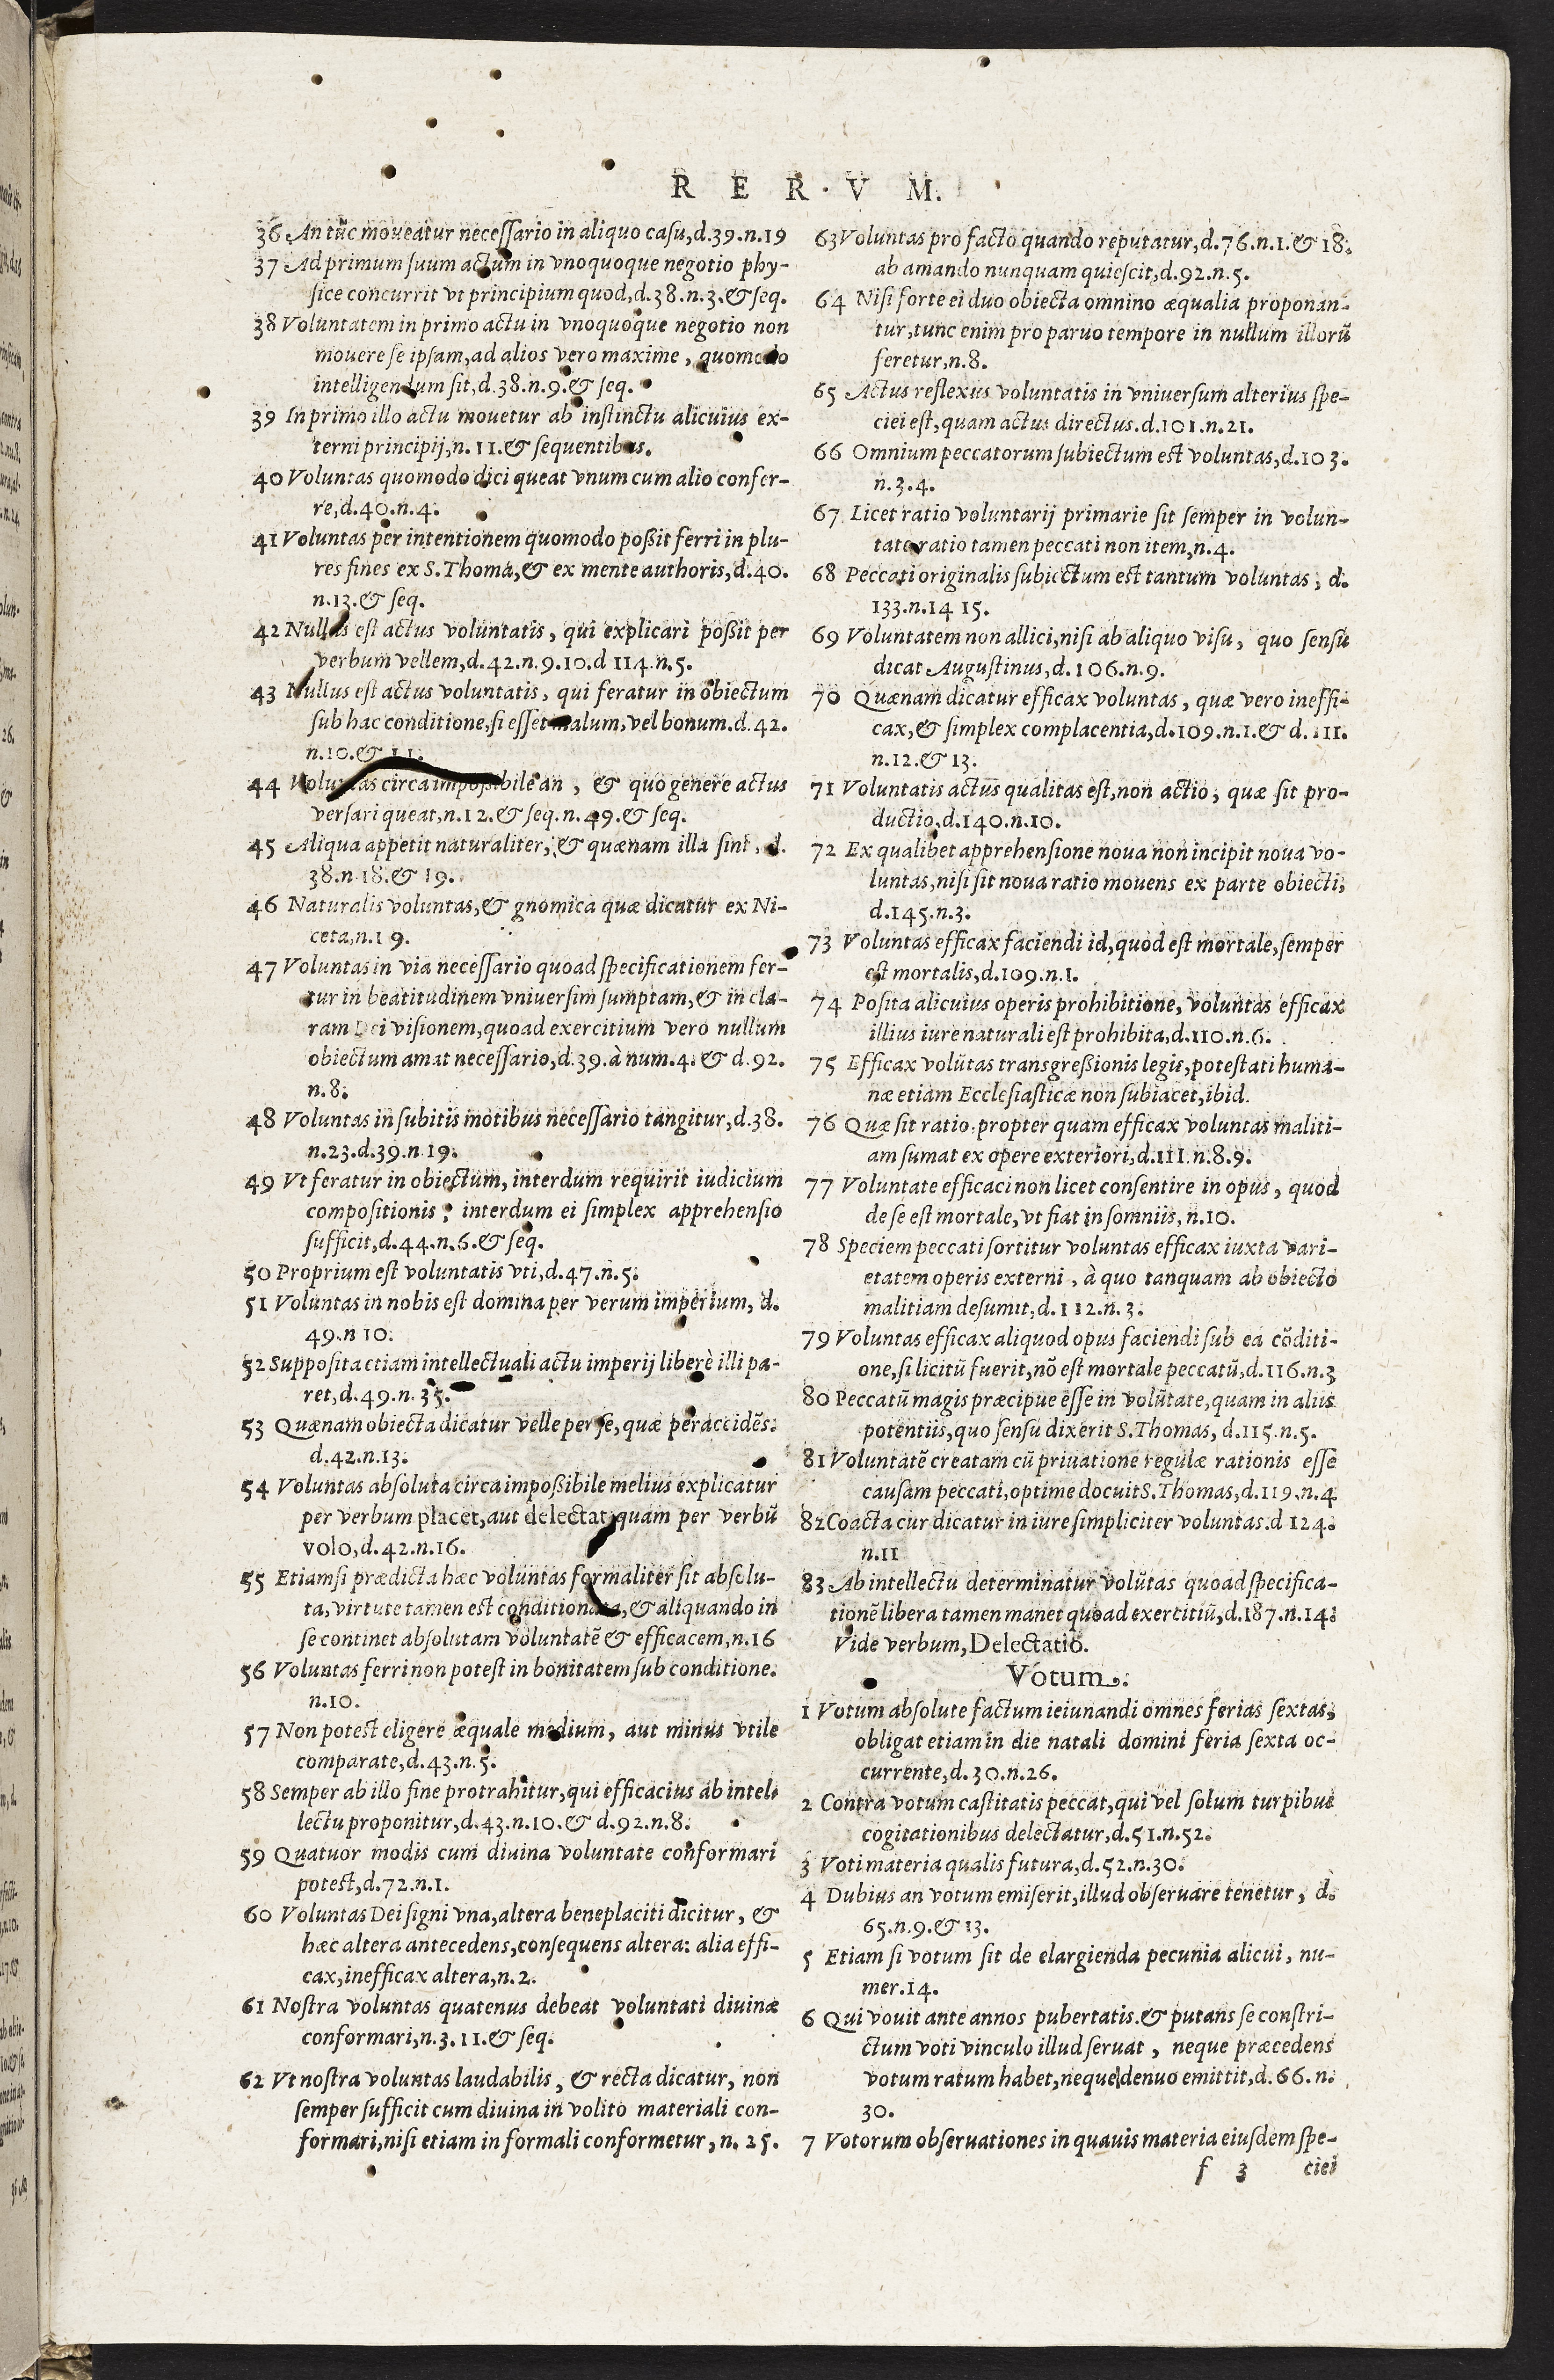 R E R V M.
36 An tũc moueatur necessario in aliquo casu, d.39.n.19
37 Ad primum suum actum in vnoquoque negotio phy-
sice concurrit vt principium quod, d.38.n.3.& seq.
38 Voluntatem in primo actu in vnoquoque negotio non
mouere se ipsam, ad alios vero maxime, quomodo
intelligendum sit, d.38.n.9.& seq.
39 In primo illo actu mouetur ab instinctu alicuius ex-
terni principij, n.11.& sequentibus.
40 Voluntas quomodo dici queat vnum cum alio confer-
re, d.40.n.4.
41 Voluntas per intentionem quomodo poßit ferri in plu-
res fines ex S. Thoma, & ex mente authoris, d.40.
n.13.& seq.
42 Nullus est actus voluntatis, qui explicari poßit per
verbum vellem, d.42.n.9.10.d 114.n.5.
43 Nullus est actus voluntatis, qui feratur in obiectum
sub hac conditione, si esset malum, vel bonum.d.42.
n.10.& 11.
44 Voluntas circa impoßibile an, & quo genere actus
versari queat, n.12.& seq.n.49.& seq.
45 Aliqua appetit naturaliter, & quænam illa sint, d.
38.n.18.& 19.
46 Naturalis voluntas, & gnomica quæ dicatur ex Ni-
ceta, n.19.
47 Voluntas in via necessario quoad specificationem fer-
tur in beatitudinem vniuersim sumptam, & in cla-
ram Dei visionem, quoad exercitium vero nullum
obiectum amat necessario, d.39.à num.4.& d.92.
n.8.
48 Voluntas in subitis motibus necessario tangitur, d.38.
n.23.d.39.n.19.
49 Vt feratur in obiectum, interdum requirit iudicium
compositionis; interdum ei simplex apprehensio
sufficit, d.44.n.6.& seq.
50 Proprium est voluntatis vti, d.47.n.5.
51 Voluntas in nobis est domina per verum imperium, d.
49.n 10.
52 Supposita etiam intellectuali actu imperij liberè illi pa-
ret, d.49.n.35.
53 Quænam obiecta dicatur velle per se, quæ per accidẽs.
d.42.n.13.
54 Voluntas absoluta circa impoßibile melius explicatur
per verbum placet, aut delectat, quam per verbũ
volo, d.42.n.16.
55 Etiamsi prædicta hæc voluntas formaliter sit absolu-
ta, virtute tamen est conditionata, & aliquando in
se continet absolutam voluntatẽ & efficacem, n.16
56 Voluntas ferri non potest in bonitatem sub conditione.
n.10.
57 Non potest eligere æquale medium, aut minus vtile
comparate, d.43.n.5.
58 Semper ab illo fine protrahitur, qui efficacius ab intel-
lectu proponitur, d.43.n.10.& d.92.n.8.
59 Quatuor modis cum diuina voluntate conformari
potest, d.72.n.1.
60 Voluntas Dei signi vna, altera beneplaciti dicitur, &
hæc altera antecedens, consequens altera: alia effi-
cax, inefficax altera, n.2.
61 Nostra voluntas quatenus debeat voluntati diuinæ
conformari, n.3.11.& seq.
62 Vt nostra voluntas laudabilis, & recta dicatur, non
semper sufficit cum diuina in volito materiali con-
formari, nisi etiam in formali conformetur, n.25.
63 Voluntas pro facto quando reputatur, d.76.n.1.& 18.
ab amando nunquam quiescit, d.92.n.5.
64 Nisi forte ei duo obiecta omnino æqualia proponan-
tur, tunc enim pro paruo tempore in nullum illorũ
feretur, n.8.
65 Actus reflexus voluntatis in vniuersum alterius spe-
ciei est, quam actus directus.d.101.n.21.
66 Omnium peccatorum subiectum est voluntas, d.103.
n.3.4.
67 Licet ratio voluntarij primarie sit semper in volun-
tate ratio tamen peccati non item, n.4.
68 Peccati originalis subiectum est tantum voluntas, d.
133.n.14 15.
69 Voluntatem non allici, nisi ab aliquo visu, quo sensu
dicat Augustinus, d.106.n.9.
70 Quænam dicatur efficax voluntas, quæ vero ineffi-
cax, & simplex complacentia, d.109.n.1.& d.111.
n.12.& 13.
71 Voluntatis actus qualitas est, non actio, quæ sit pro-
ductio, d.140.n.10.
72 Ex qualibet apprehensione noua non incipit noua vo-
luntas, nisi sit noua ratio mouens ex parte obiecti,
d.145.n.3.
73 Voluntas efficax faciendi id, quod est mortale, semper
est mortalis, d.109.n.1.
74 Posita alicuius operis prohibitione, voluntas efficax
illius iure naturali est prohibita, d.110.n.6.
75 Efficax volũtas transgreßionis legis, potestati huma-
næ etiam Ecclesiasticæ non subiacet, ibid.
76 Quæ sit ratio, propter quam efficax voluntas maliti-
am sumat ex opere exteriori, d.111.n.8.9.
77 Voluntate efficaci non licet consentire in opus, quod
de se est mortale, vt fiat in somniis, n.10.
78 Speciem peccati sortitur voluntas efficax iuxta vari-
etatem operis externi, à quo tanquam ab obiecto
malitiam desumit, d.112.n.3.
79 Voluntas efficax aliquod opus faciendi sub ea cõditi-
one, si licitũ fuerit, nõ est mortale peccatũ, d.116.n.3
80 Peccatũ magis præcipue esse in volũtate, quam in aliis
potentiis, quo sensu dixerit S. Thomas, d.115.n.5.
81 Voluntatẽ creatam cũ priuatione regulæ rationis esse
causam peccati, optime docuit S. Thomas, d.119.n.4
82 Coacta cur dicatur in iure simpliciter voluntas.d 124.
n.11
83 Ab intellectu determinatur volũtas quoad specifica-
tionẽ libera tamen manet quoad exercitiũ, d.187.n.14.
Vide verbum, Delectatio.
Votum.
1 Votum absolute factum ieiunandi omnes ferias sextas,
obligat etiam in die natali domini feria sexta oc-
currente, d.30.n.26.
2 Contra votum castitatis peccat, qui vel solum turpibus
cogitationibus delectatur, d.51.n.52.
3 Voti materia qualis futura, d.52.n.30.
4 Dubius an votum emiserit, illud obseruare tenetur, d.
65.n.9.& 13.
5 Etiam si votum sit de elargienda pecunia alicui, nu-
mer.14.
6 Qui vouit ante annos pubertatis.& putans se constri-
ctum voti vinculo illud seruat, neque præcedens
votum ratum habet, neque denuo emittit, d.66.n.
30.
7 Votorum obseruationes in quauis materia eiusdem spe-
f 3 ciei